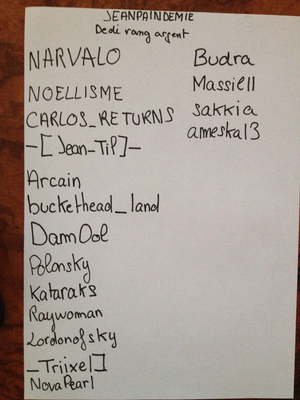 JEANPAINDEMIE
Dedi rang argent
NARVALO
NOELLISME
CARLOS_RETURNS
-[Jean_Til]-
Arcain
buckethead_land
DamOol
Polonsky
Kataraks
Raywoman
Lordonofsky
_Triixel]
NovaPearl
Budra
Massiell
sakkia
ameska13